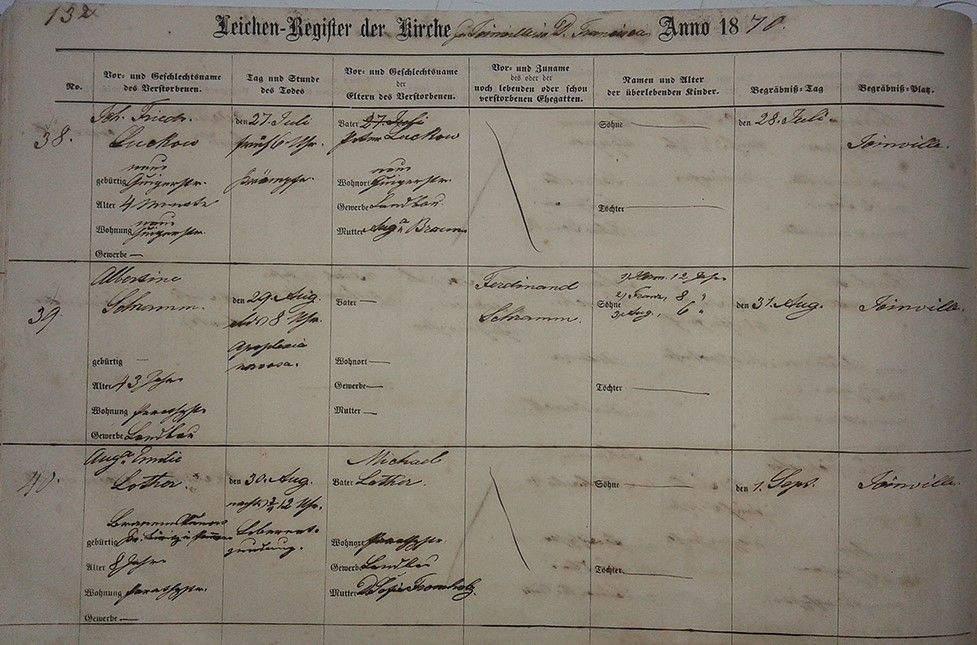 132
Leichen-Register der Kirche zu Joinville in D. Francisca Anno 1870.
No.
Vor- und Geschlechtsname
des Verstorbenen.
Tag und Stunde
des Todes
Vor- und Geschlechtsname
der
Eltern des Verstorbenen.
Vor- und Zuname
des oder der
noch lebenden oder schon
verstorbenen Ehegatten.
Namen und Alter
der überlebenden Kinder.
Begräbniß-Tag
Begräbniß-Platz.
38.
Friedr.
Luckow
neue
gebürtig
Alter 4 Monate
neue
Wohnung
Gewerbe —
den 27. Juli
früh 6 Uhr.
Krämpfe.
27. Juli
Vater
Peter Luckow
neue
Wohnort
Gewerbe Landbau.
Mutter Aug.
Söhne —
Töchter —
den 28. Juli
Joinville.
39
Albertine
Schramm.
gebürtig —
Alter 43 Jahr
Wohnung
Gewerbe Landbau
den 29. Aug.
8 Uhr.
Apoplexia
nervosa.
Vater —
Wohnort —
Gewerbe —
Mutter —
Ferdinand
Schramm.
1) Herm. 12 Jahr
2) Franz, 8 "
Söhne
3) Aug., 6 "
Töchter —
den 31. Aug.
Joinville.
40.
Aug. Emilie
Lother.
gebürtig
Alter 8 Jahr
Wohnung
Gewerbe —
den 30. Aug.
nachts 12 Uhr.
Leberent-
zündung.
Michael
Vater Lother.
Wohnort
Gewerbe Landbau
Mutter
Söhne —
Töchter —
den 1. Sept.
Joinville.